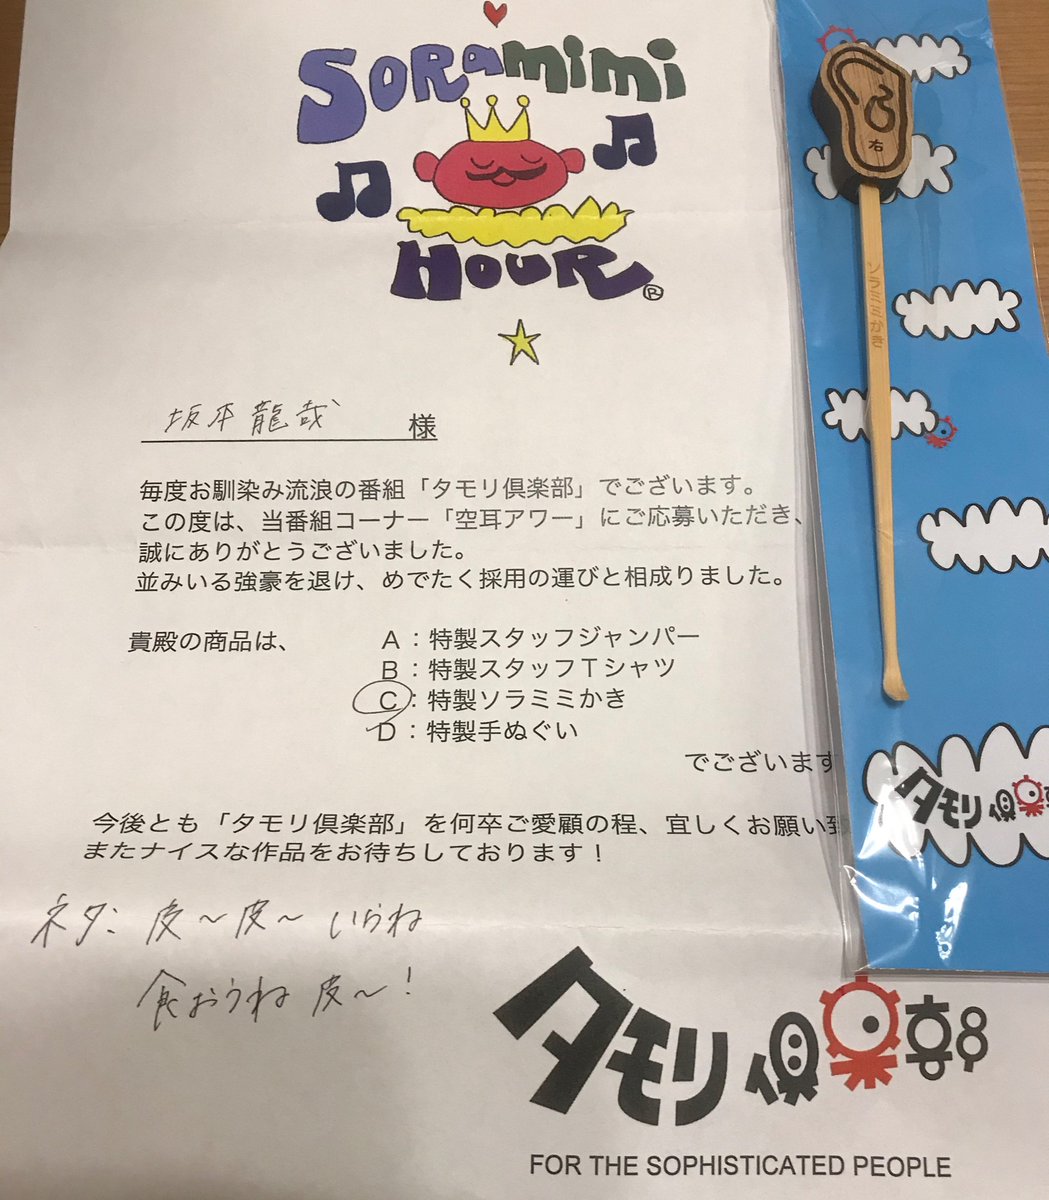 SORAMIMI
HOUR®
坂本龍哉 様
毎度お馴染み流浪の番組「タモリ倶楽部」でございます。
この度は、当番組コーナー「空耳アワー」にご応募いただき、
誠にありがとうございました。
並みいる強豪を退け、めでたく採用の運びと相成りました。
貴殿の商品は、
A：特製スタッフジャンパー
B：特製スタッフTシャツ
C：特製ソラミミかき
D：特製手ぬぐい
でございます
今後とも「タモリ倶楽部」を何卒ご愛顧の程、宜しくお願い致
またナイスな作品をお待ちしております！
ネタ: 皮〜皮〜いらね
食おうね 皮〜!
タモリ倶楽部
FOR THE SOPHISTICATED PEOPLE
右
ソラミミかき
タモリ倶楽部